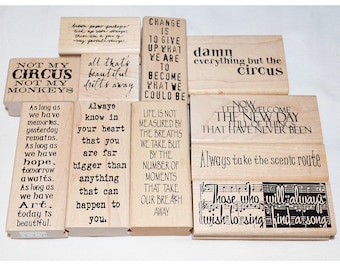 brown paper packages
tied up with strings
these are a few of
my favorite things
CHANGE
IS TO
GIVE UP
WHAT WE
ARE TO
BECOME
WHAT WE
COULD BE
damn
everything but the
circus
NOT MY
CIRCUS
NOT MY
MONKEYS
all that's
beautiful
drifts away
As long as
we have
memories,
yesterday
remains.
As long as
we have
hope,
tomorrow
awaits.
As long as
we have
Art,
today is
beautiful.
Always
know in
your heart
that you
are far
bigger than
anything
that can
happen to
you.
LIFE IS NOT
MEASURED BY
THE BREATHS
WE TAKE BUT
BY THE
NUMBER OF
MOMENTS
THAT TAKE
OUR BREATH
AWAY
NOW
WELCOME
THE NEW DAY
THINGS
THAT HAVE NEVER BEEN
Always take the scenic route
Those who will always
wish to sing find a song